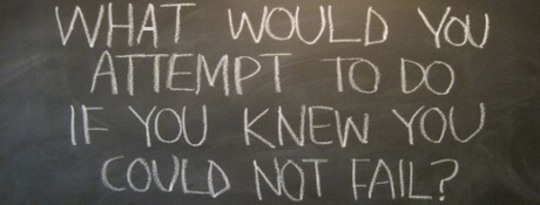 WHAT WOULD YOU
ATTEMPT TO DO
IF YOU KNEW YOU
COULD NOT FAIL?